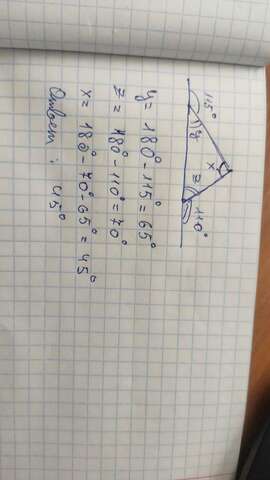 115°
y
x
z
110°
y = 180° - 115° = 65°
z = 180° - 110° = 70°
x = 180° - 70° - 65° = 45°
Ответ: 45°